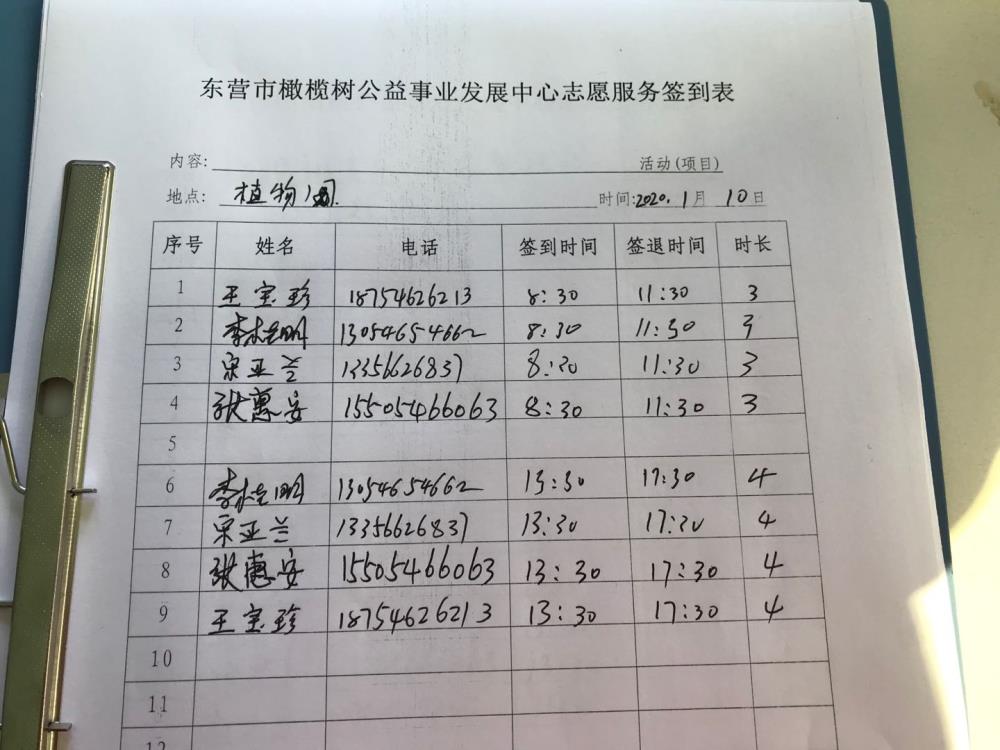 东营市橄榄树公益事业发展中心志愿服务签到表
内容: 活动(项目)
地点: 植物园 时间:2020.1月10日
序号 姓名 电话 签到时间 签退时间 时长
1 王宝珍 18754626213 8:30 11:30 3
2 李桂明 13054654662 8:30 11:30 3
3 宋亚兰 13356626837 8:30 11:30 3
4 张惠安 15505466063 8:30 11:30 3
5
6 李桂明 13054654662 13:30 17:30 4
7 宋亚兰 13356626837 13:30 17:30 4
8 张惠安 15505466063 13:30 17:30 4
9 王宝珍 18754626213 13:30 17:30 4
10
11
12